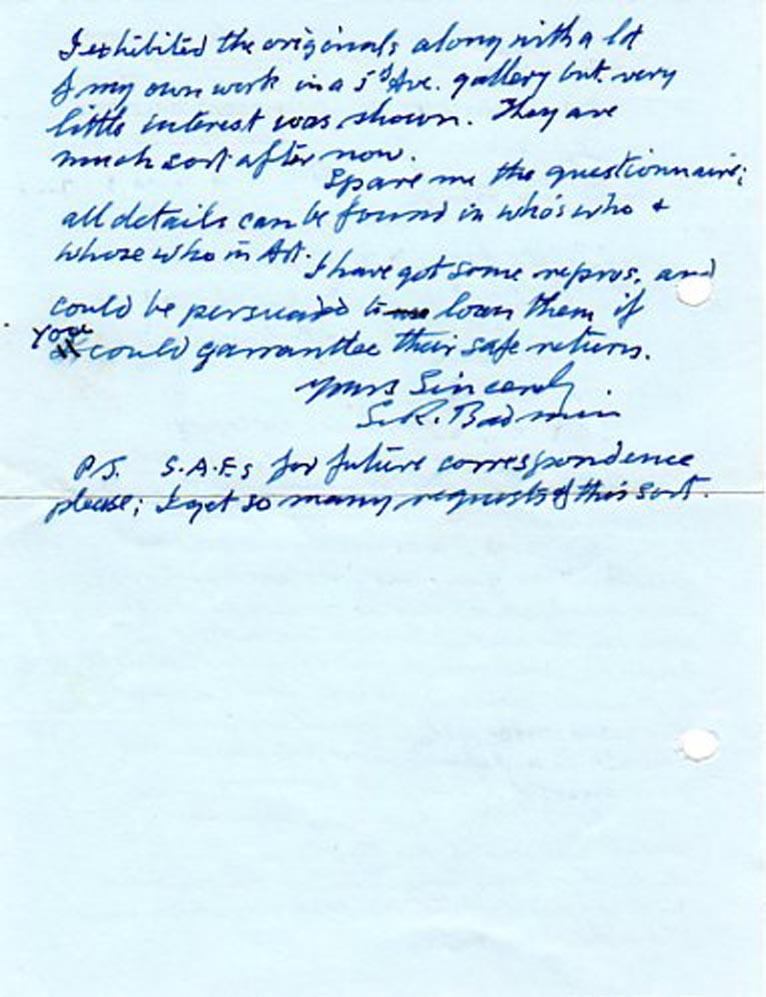 I exhibited the originals along with a lot
of my own work in a 5th Ave. gallery but very
little interest was shown. They are
much sort after now.
Spare me the questionnaire;
all details can be found in who's who +
whose who in Art.
I have got some repros, and
could be persuaded to loan them if
you could garrantee their safe return.
Yours Sincerely
S.R. Badmin
P.S. S.A.Es for future correspondence
please; I get so many requests of this sort.